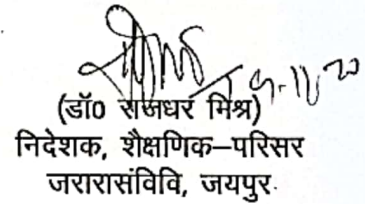 (डॉ0 राजधर मिश्र)
निदेशक, शैक्षणिक–परिसर
जरारासंविवि, जयपुर